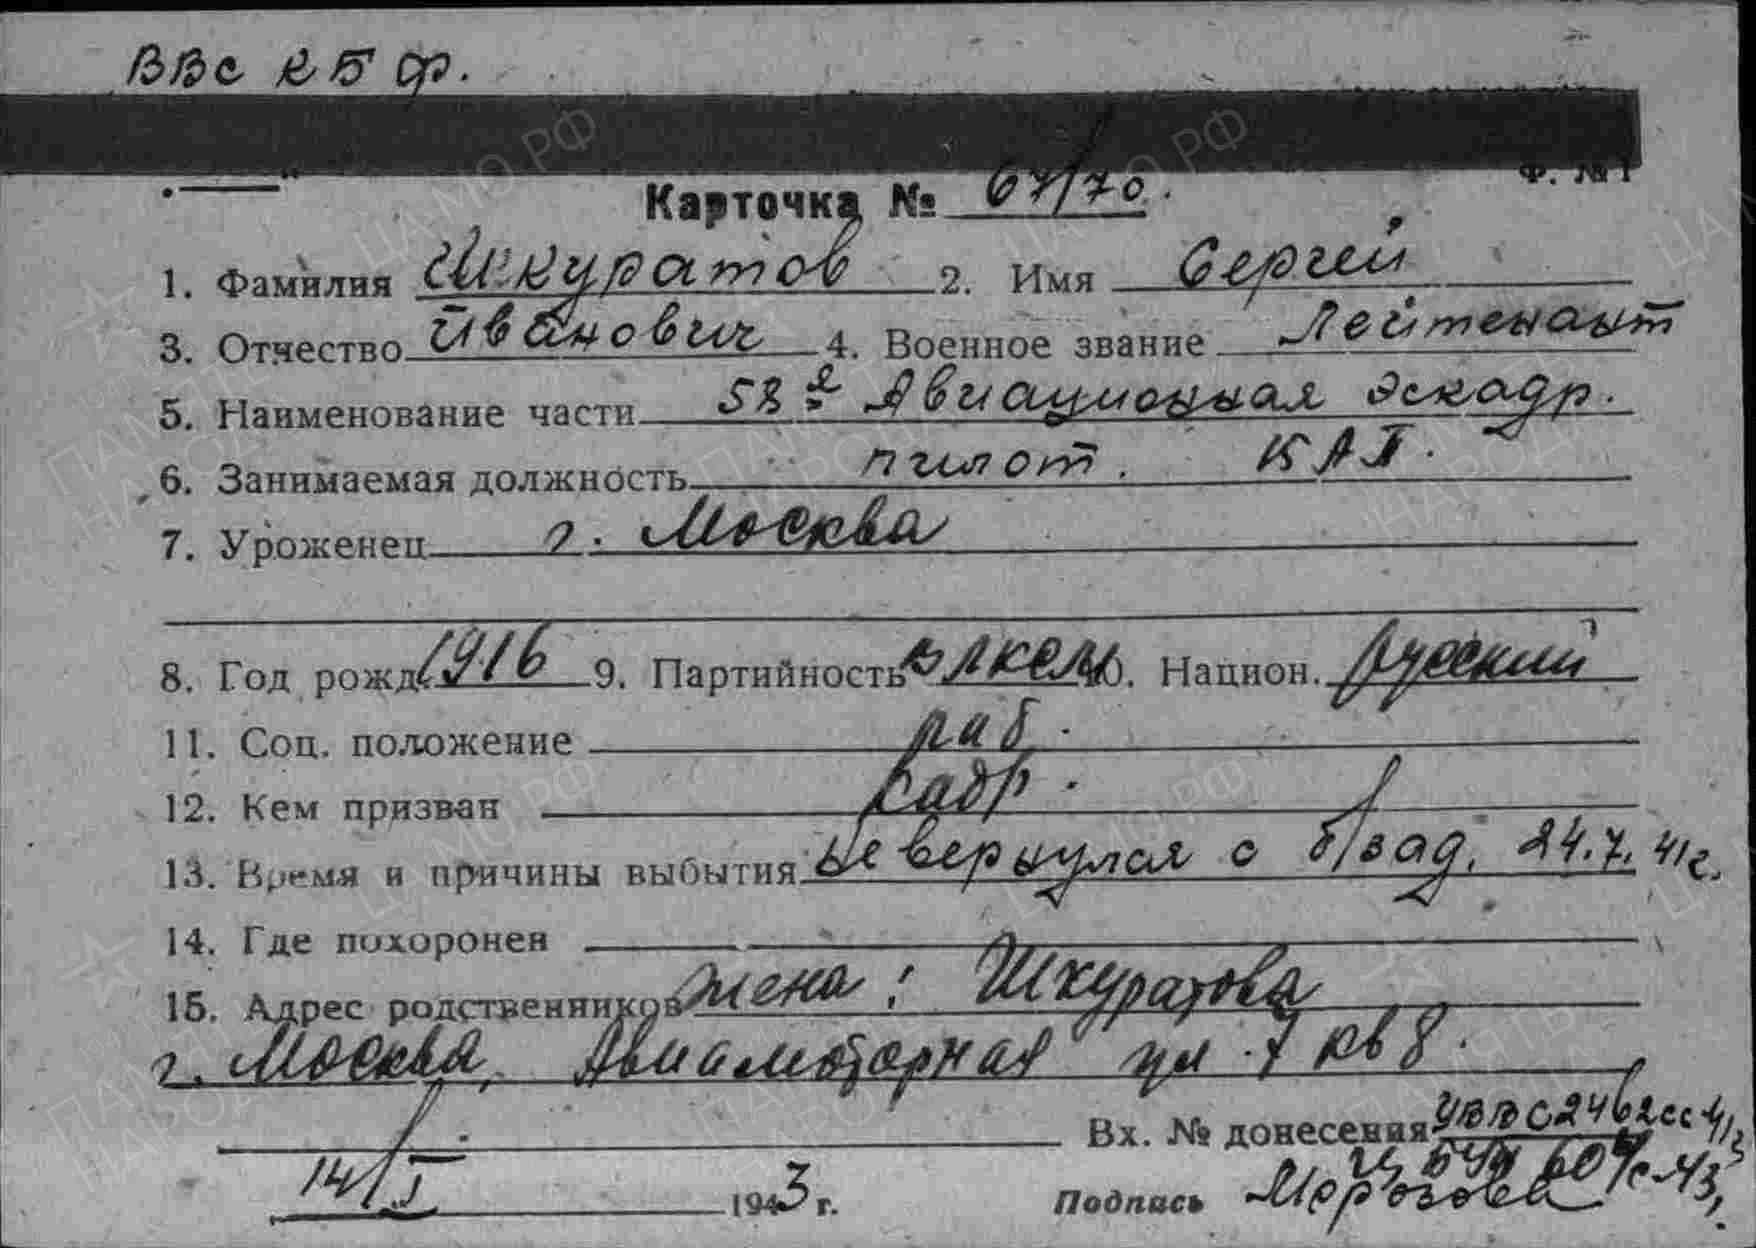 ВВС КБФ.
Ф. № 1
Карточка № 67/70.
1. Фамилия Шкуратов 2. Имя Сергей
3. Отчество Иванович 4. Военное звание Лейтенант
5. Наименование части 58я Авиационная эскадр.
6. Занимаемая должность пилот.
7. Уроженец г. Москва
8. Год рожд. 1916 9. Партийность ВЛКСМ 10. Национ. Русский
11. Соц. положение раб.
12. Кем призван кадр.
13. Время и причины выбытия не вернулся с б/зад. 24.7.41г.
14. Где похоронен
15. Адрес родственников жена: Шкуратова
г. Москва, Авиамоторная ул. 7 кв 8.
Вх. № донесения УВВС 2462сс 41г
14/I 1943 г. Подпись Морозова